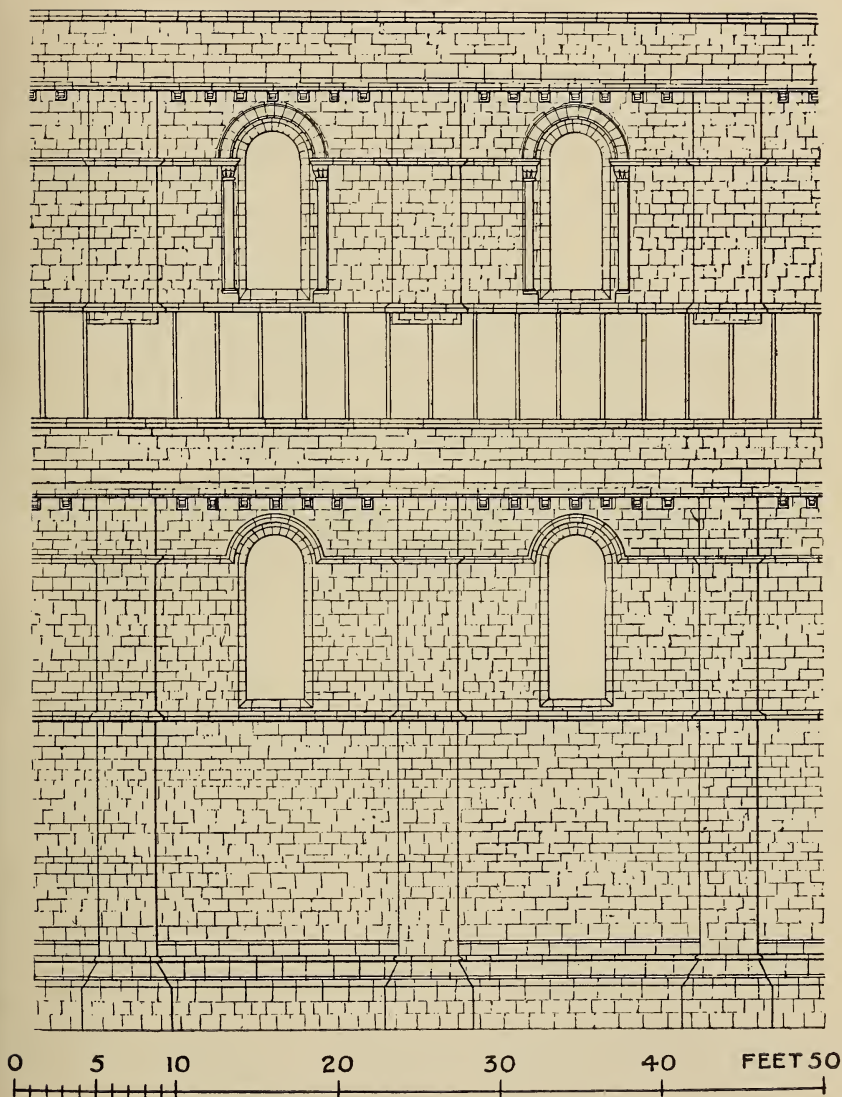 0 5 10 20 30 40 FEET 50